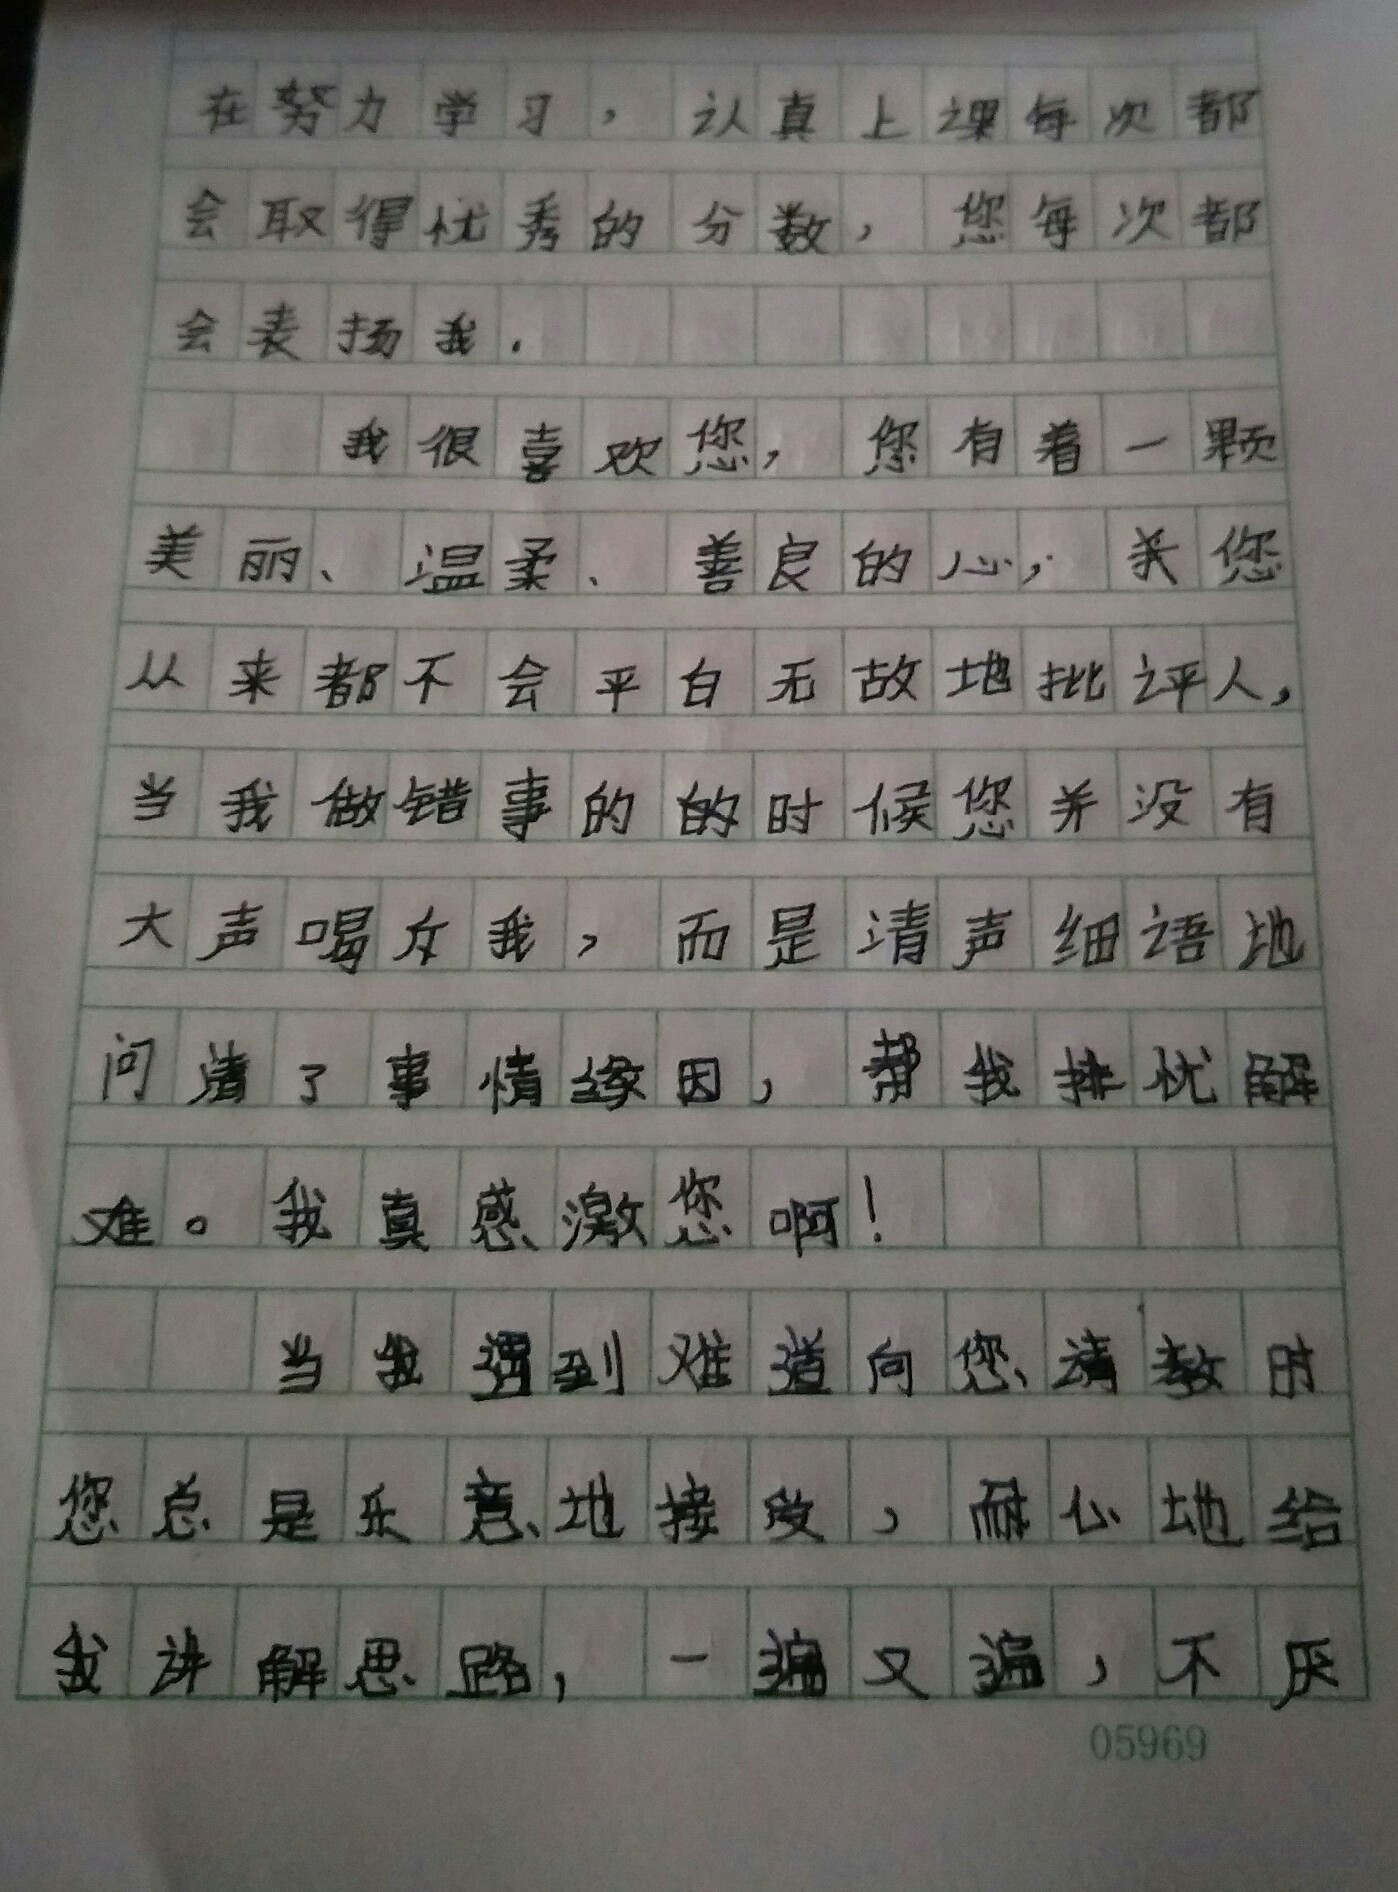 在努力学习，认真上课每次都
会取得优秀的分数，您每次都
会表扬我.
我很喜欢您，您有着一颗
美丽、温柔、善良的心，关您
从来都不会平白无故地批评人，
当我做错事的的时候您并没有
大声喝斥我，而是清声细语地
问清了事情缘因，帮我排忧解
难。我真感激您啊！
当我遇到难道向您请教时
您总是乐意地接受，耐心地给
我讲解思路，一遍又遍，不厌
05969